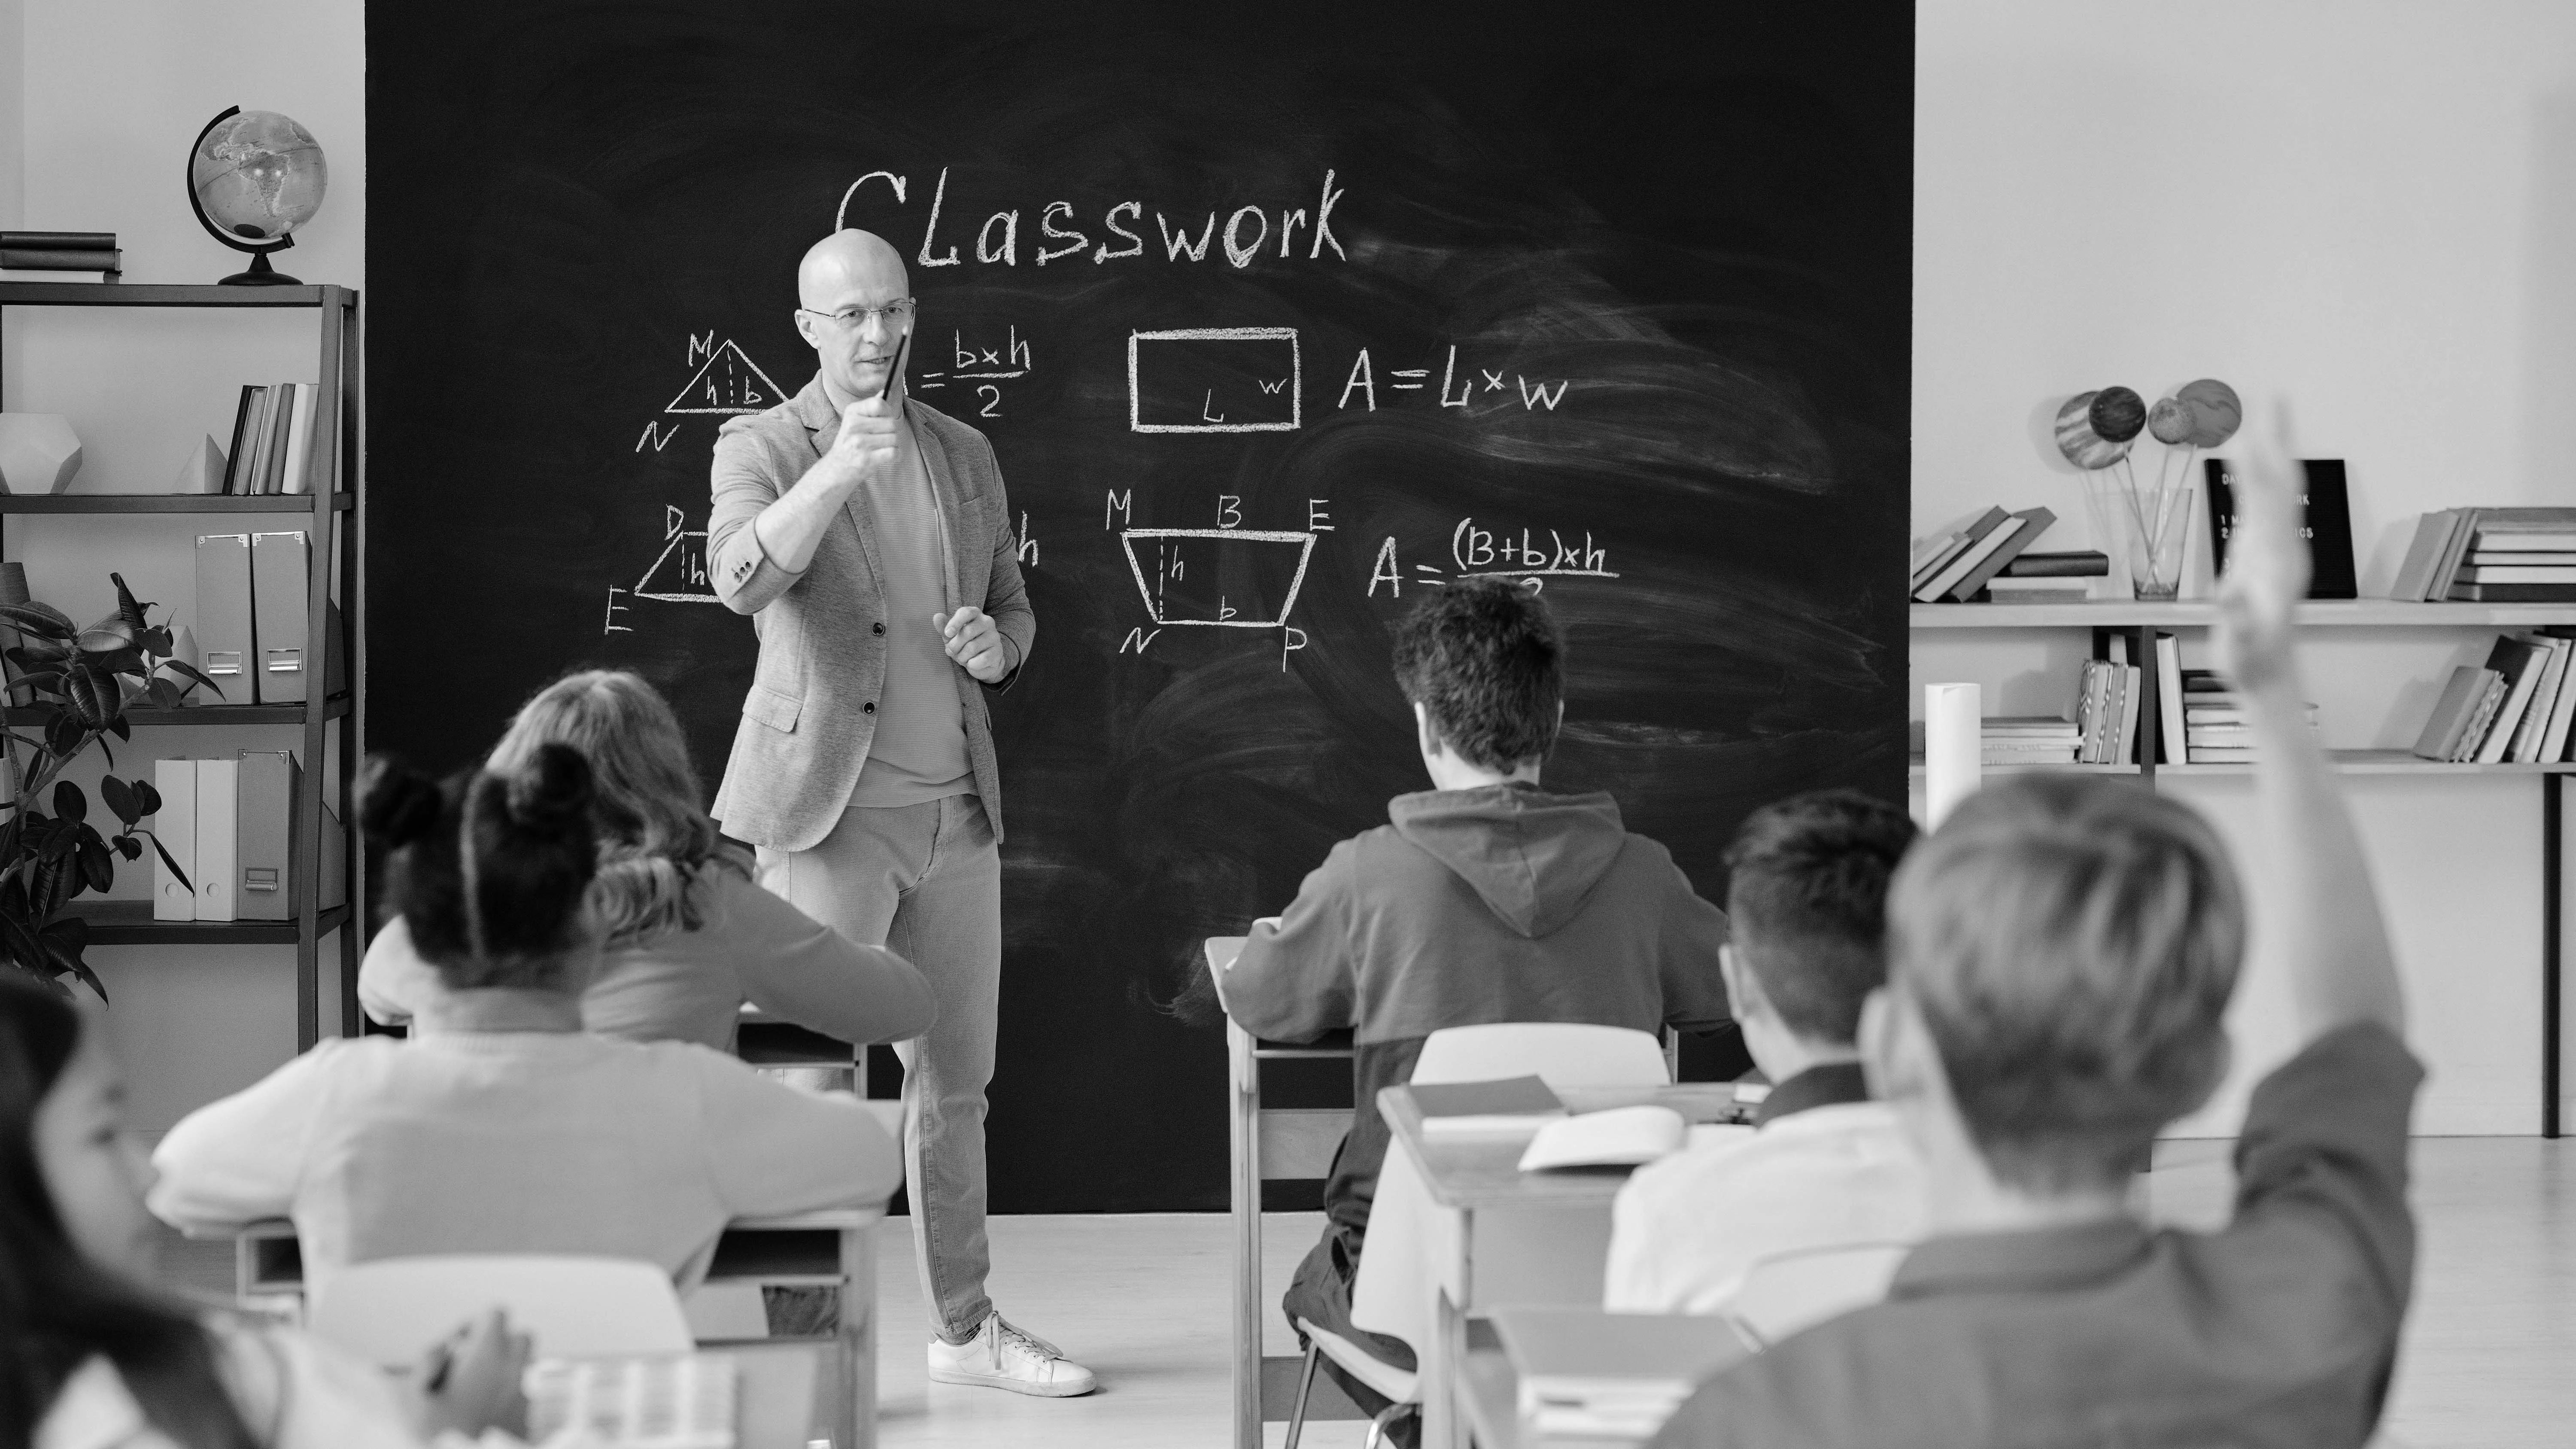 Classwork
M
h b
N
= b×h
2
L w
A = L×w
D
h
E
h
M B E
h
b
N P
A = (B+b)×h